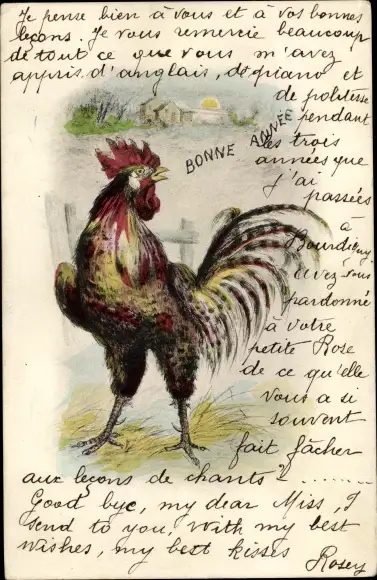 Je pense bien à vous et à vos bonnes
leçons. Je vous remercie beaucoup
de tout ce que vous m'avez
appris d'anglais, de piano et
de politesse
pendant
les trois
années que
j'ai
passées
à
Bourdigny
avez vous
pardonné
à votre
petite Rose
de ce qu'elle
vous a si
souvent
fait fâcher
aux leçons de chants? ........
Good bye, my dear Miss, I
send to you, with my best
wishes, my best kisses
Rosey
BONNE ANNÉE